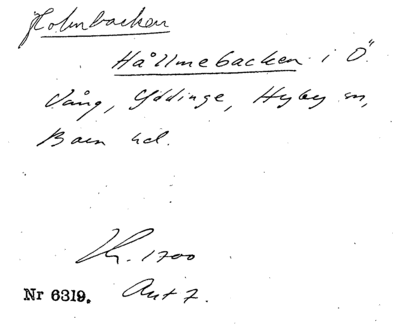 Holmbacken
Hållmebacken i Ö.
Vång, Yddinge, Hyby sn,
Bara hd.
Kr. 1700
Ant 7.
Nr 6319.